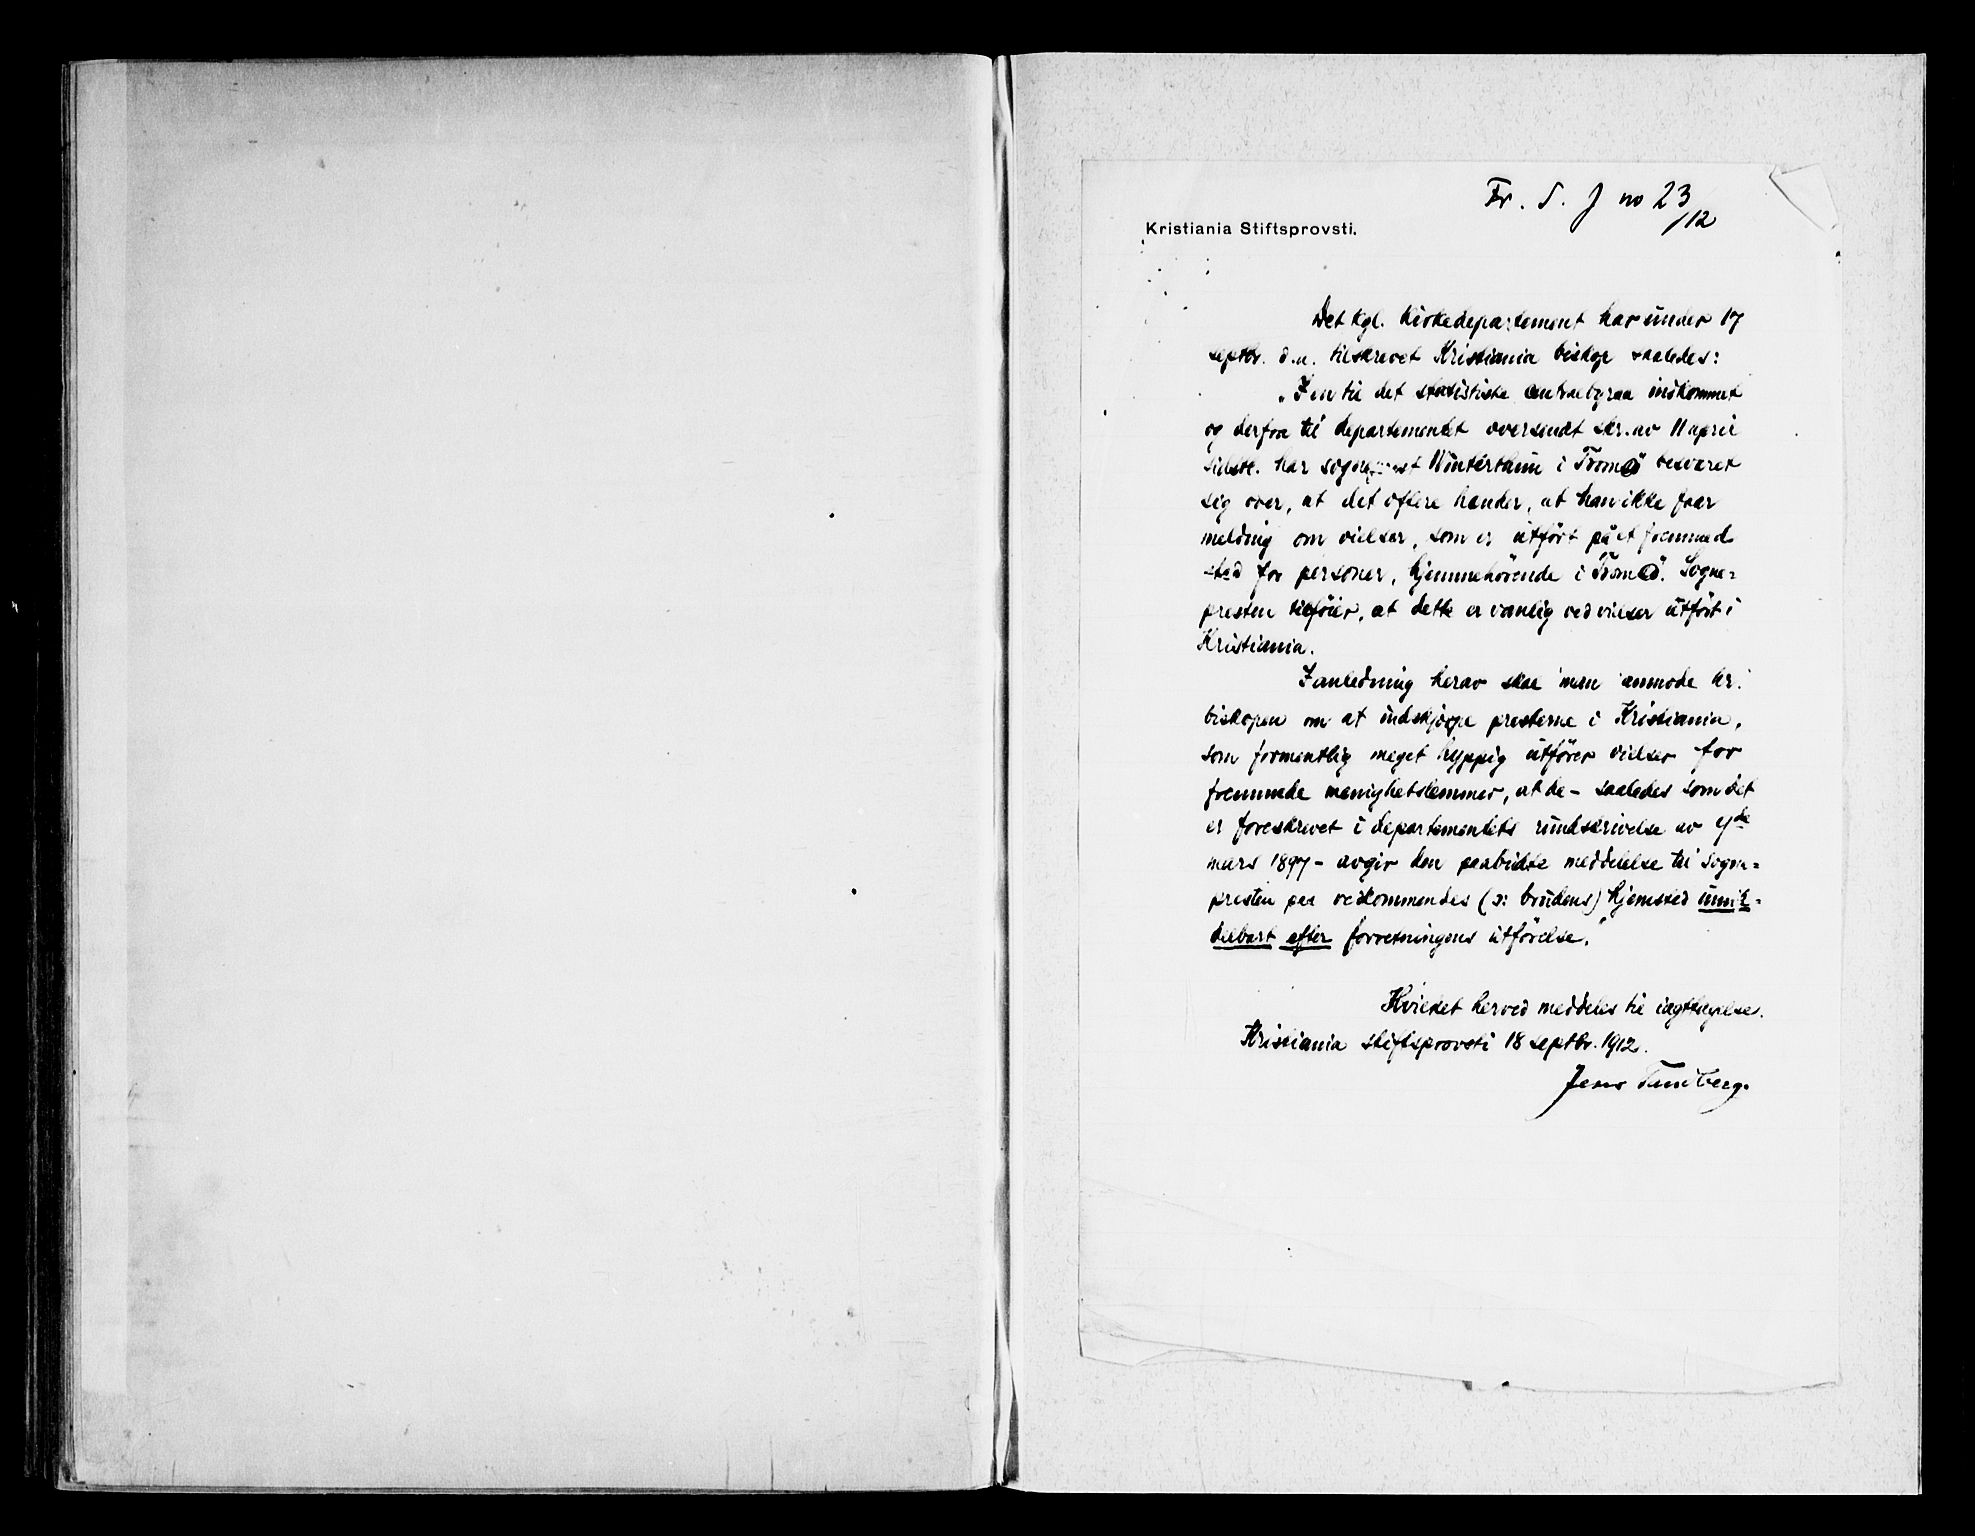 Fr. S. J no 23/12
Kristiania Stiftsprovsti.
Det kgl. kirkedepartement har under 17
septbr. d.a. tilskrevet Kristiania biskop saaledes:
"I en til det statistiske centralbyraa indkommet
og derfra til departementet oversendt skr. av 11 april
sidstl. har sogneprest Winterthun i Tromø besværet
sig over, at det oftere hænder, at han ikke faar
melding om vielser, som er utført på et fremmed
sted for personer, hjemmehörende i Tromø. Sogne=
presten tilföier, at dette er vanlig ved vielser utfört i
Kristiania.
I anledning herav skal man anmode hr.
biskopen om at indskjærpe presterne i Kristiania,
som formentlig meget hyppig utförer vielser for
fremmede menighetslemmer, at de - saaledes som det
er foreskrevet i departementets rundskrivelse av 9de
mars 1897 - avgir den paabudte meddelelse til sogne=
presten paa vedkommendes (ɔ: brudens) hjemsted umid=
delbart efter forretningens utförelse."
Hvilket herved meddeles til iagttagelse.
Kristiania stiftsprovsti 18 septbr. 1912.
Jens